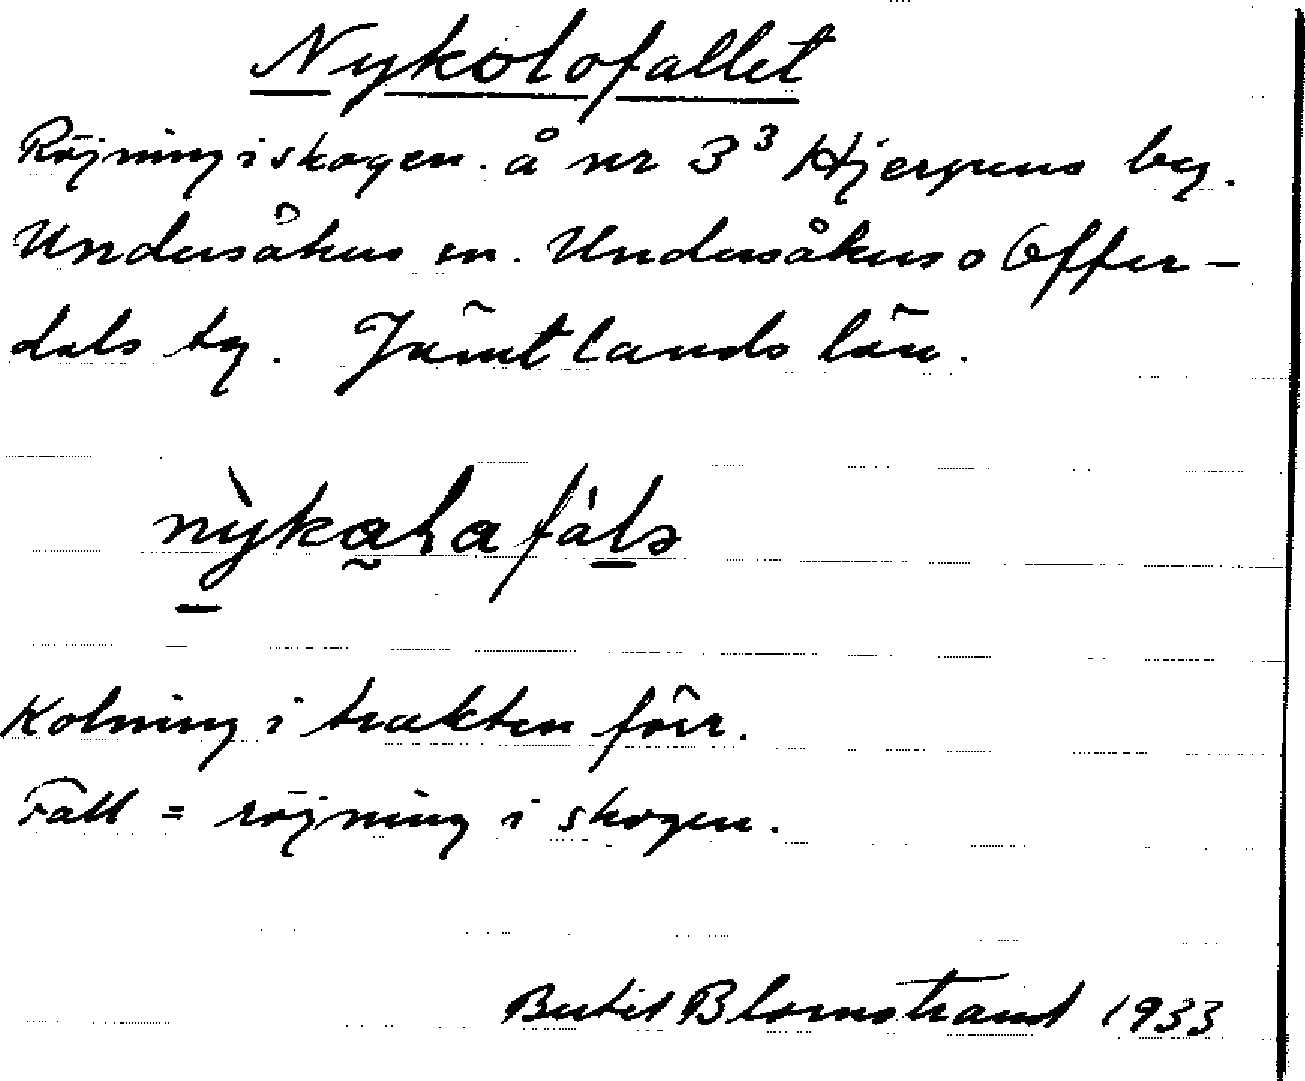 Nykolofallet
Röjning i skogen. å nr 3³ Hjerpens by.
Undersåkers sn. Undersåkers o Offer-
dals tg. Jämtlands län.
Kolning i trakten förr.
Fall = röjning i skogen.
Bertil Blomstrand 1933